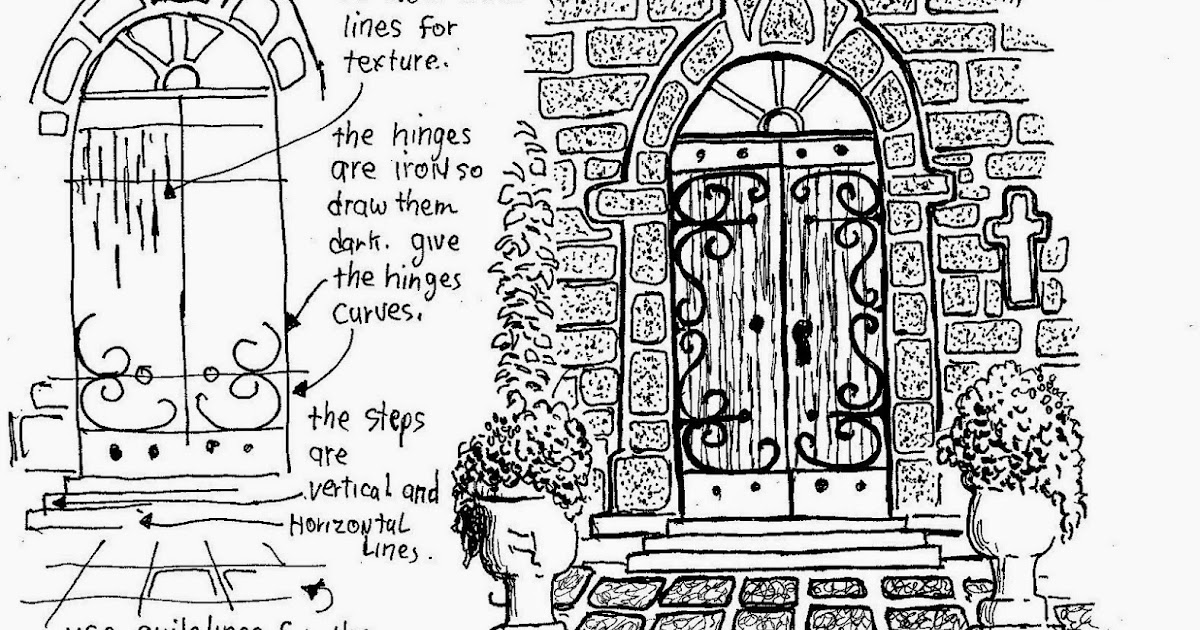 lines for
texture.
the hinges
are iron so
draw them
dark. give
the hinges
curves.
the steps
are
vertical and
Horizontal
Lines.
use guidelines for the